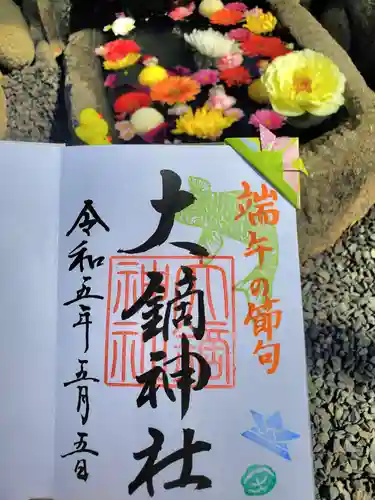 端午の節句
大鏑神社
大鏑
神社
令和五年五月五日